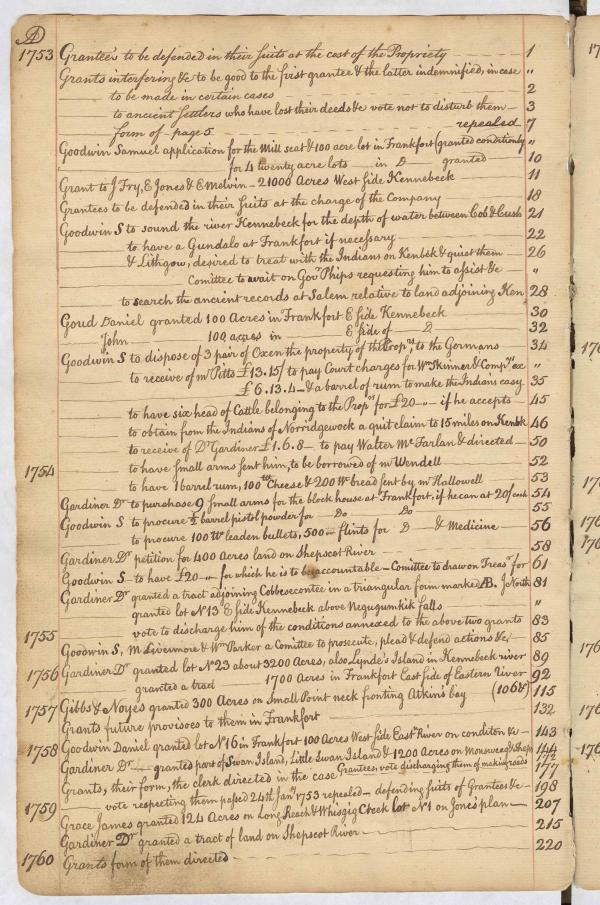 A
1753 Grantees to be defended in their suits at the cost of the Propriety 1
Grants interfering &c to be good to the first grantee & the latter indemnified, in case "
to be made in certain cases 2
to ancient settlers who have lost their deeds &c vote not to disturb them 3
form of - page 5 repealed 7
Goodwin Samuel application for the Mill seat & 100 acre lot in Frankfort (granted conditionly "
for 4 twenty acre lots in D granted 10
Grant to J Fry, E Jones & E Melvin - 21000 Acres West side Kennebeck 11
Grantees to be defended in their suits at the charge of the Company 18
Goodwin S to sound the river Kennebeck for the depth of water between Cob & Cush 21
to have a Gundalo at Frankfort if necessary 22
& Lithgow, desired to treat with the Indians on Kenbek & quiet them 26
Comittee to await on Govr Phips requesting him to assist &c "
to search the ancient records at Salem relative to land adjoining Ken, 28
Goud Daniel granted 100 Acres in Frankfort E side Kennebeck 30
John 100 acres in E side of D 32
Goodwin S to dispose of 3 pair of Oxen the property of the Proprs, to the Germans 34
to receive of mr Pitts £13.15/ to pay Court charges for Wm Skinner & Compys ex "
£6.13.4 - & a barrel of rum to make the Indians easy 35
to have six head of Cattle belonging to the Props for £20 - " - if he accepts 45
to obtain from the Indians of Norridgewock a quit claim to 15 miles on Kenbk 46
to receive of Dr Gardiner £1.6.8 - to pay Walter Mc Farlan & directed 50
1754 to have small arms sent him, to be borrowed of mr Wendell 52
to have 1 barrel rum, 100 wt Cheese & 200 Wt bread sent by mr Hallowell 53
Gardiner Dr to purchase 9 small arms for the block house at Frankfort, if he can at 20/ each 54
Goodwin S to procure ½ barrel pistol powder for Do Do 55
to procure 100 wt leaden bullets, 500 - flints for D & Medicine 56
Gardiner Dr petition for 400 Acres land on Shepscot River 58
Goodwin S - to have £20 - " for which he is to be accountable - Comittee to draw on Treasr for 61
Gardiner Dr granted a tract adjoining Cobbesecontee in a triangular form marked AB. J North 81
granted lot No 13 E side Kennebeck above Negugumkik falls "
vote to discharge him of the conditions annexed to the above two grants 83
1755 Goodwin S, M Livermore & Wm Parker a Comittee to prosecute, plead & defend actions &c 85
Gardiner Dr granted lot No 23 about 3200 Acres, also Lynde's Island in Kennebeck river 89
1756 granted a tract 1700 Acres in Frankfort East side of Eastern River 92
Gibbs & Noyes granted 300 Acres on Small Point neck fronting Atkins bay (106 &) 115
1757 Grants future provisoes to them in Frankfort 132
Goodwin Daniel granted lot No 16 in Frankfort 100 Acres West side East River on conditon &c 143
1758 Gardiner Dr granted part of Swan Island, Little Swan Island & 1200 Acres on Monsweag & Sheps 144
Grants, their form, the clerk directed in the case Grantees, vote discharging them of making roads 172 177
vote respecting them passed 24th Jany 1753 repealed - defending suits of Grantees &c 198
1759 Grace James granted 124 Acres on Long Reach & Whisgig Creek lot No 1 on Jones plan 207
Gardiner Dr granted a tract of land on Shepscot River 215
1760 Grants form of them directed 220